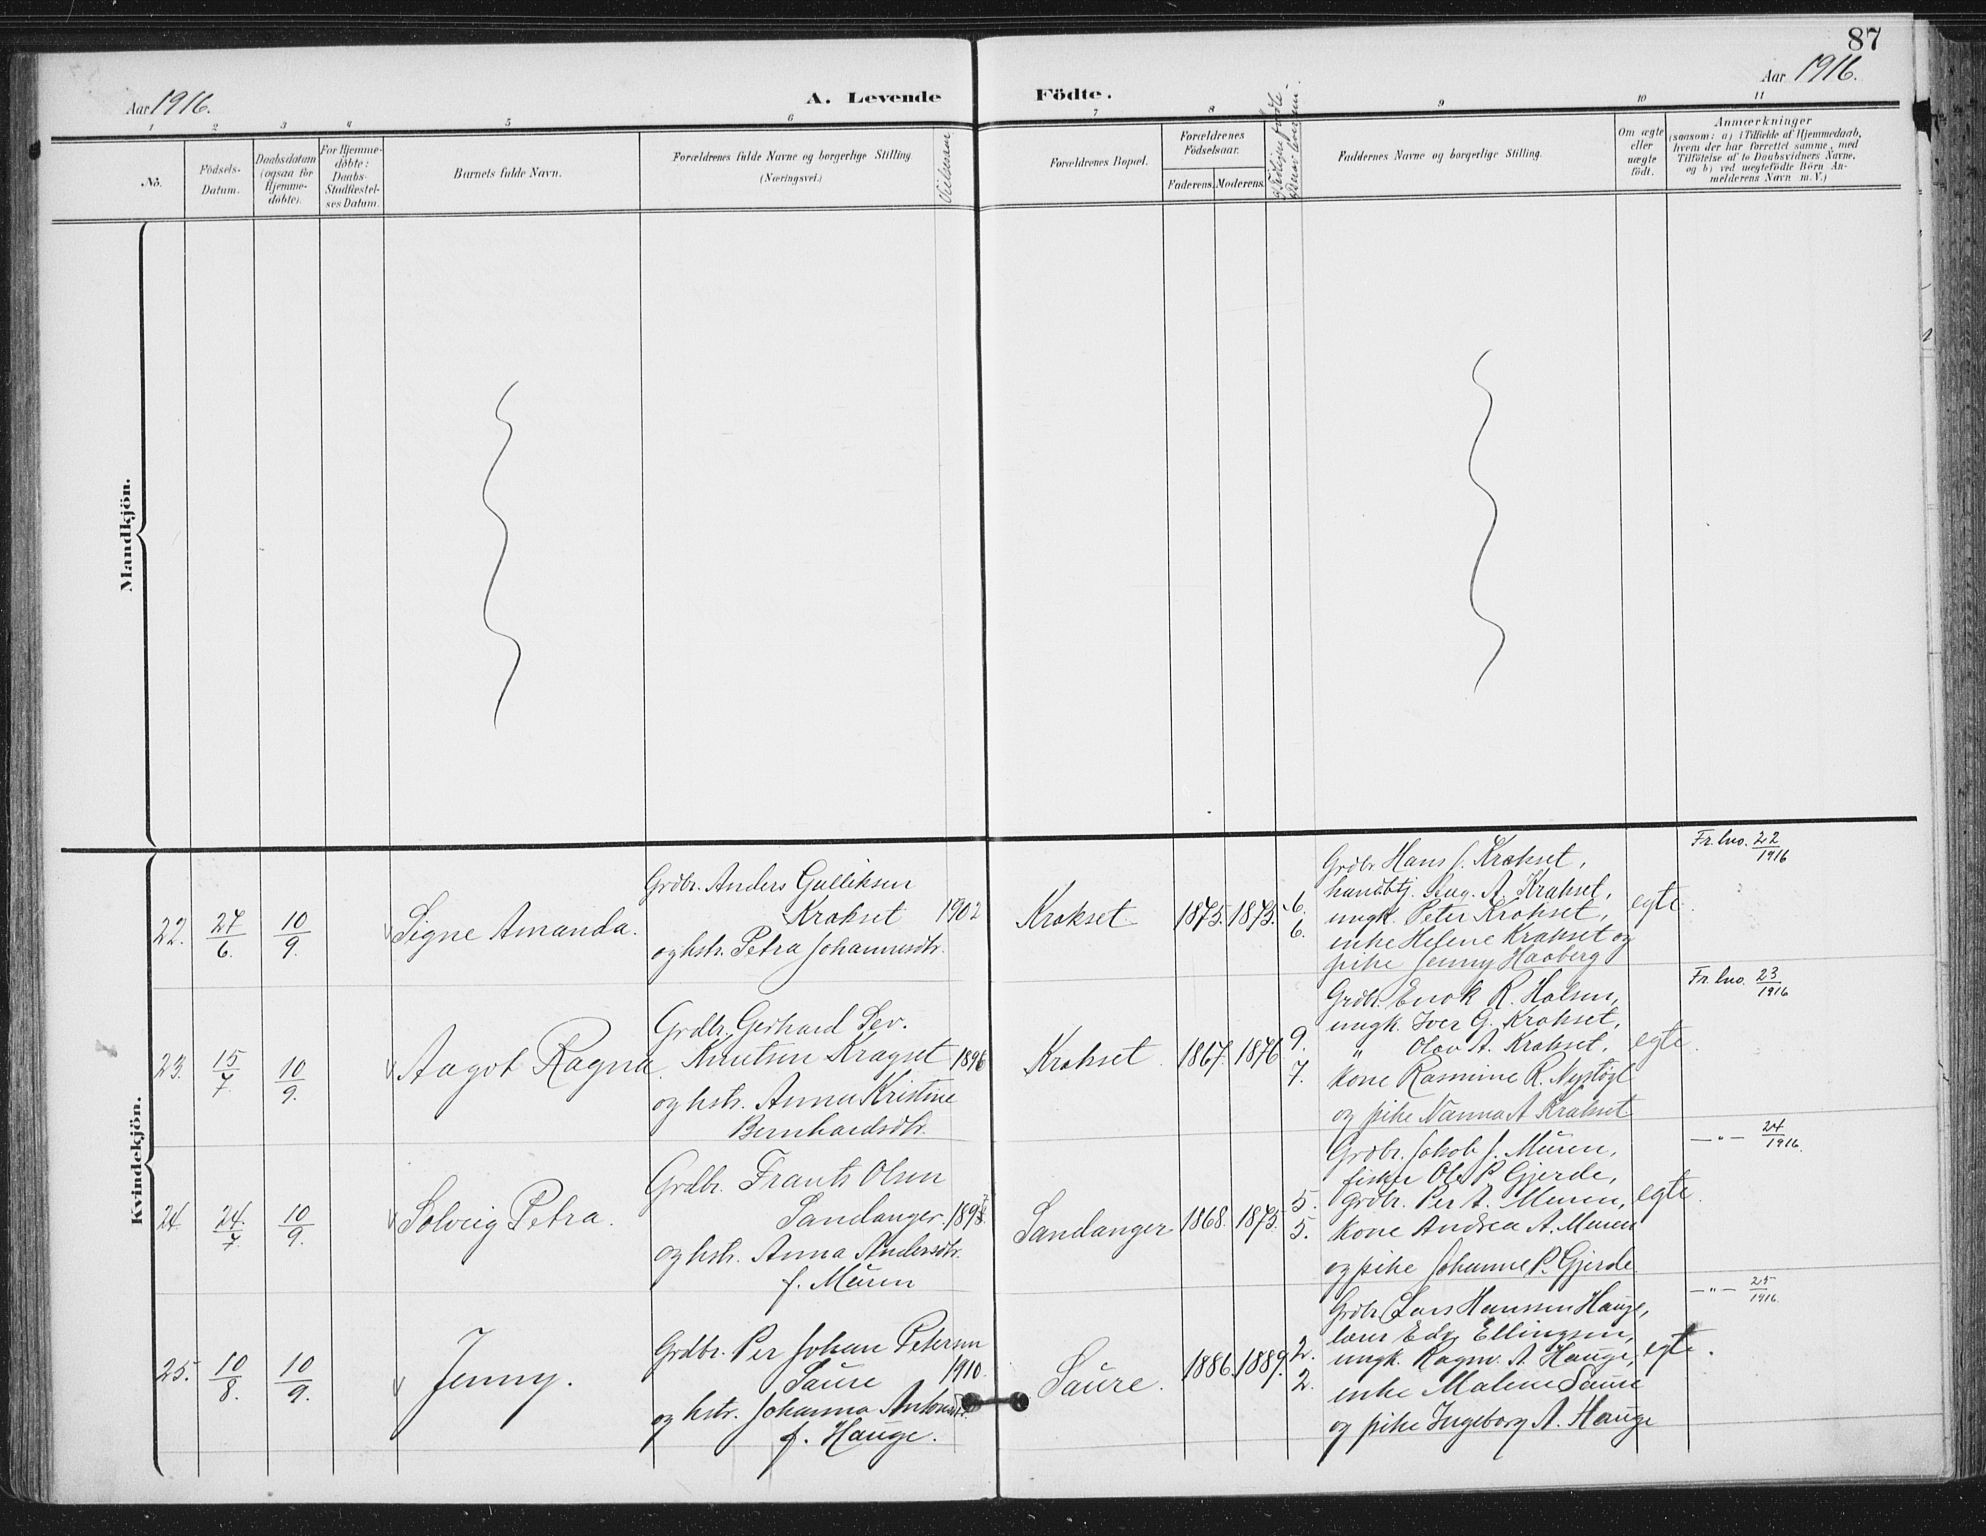 87
Aar 1916.
A. Levende
Födte.
Aar 1916.
1 2 3 4 5 6 7 8 9 10 11
No.
Födsels-
Datum.
Daabsdatum
(ogsaa for
Hjemme-
döbte).
For Hjemme-
döbte:
Daabs-
Stadfæstel-
ses Datum.
Barnets fulde Navn.
Forældrenes fulde Navne og borgerlige Stilling
(Næringsvei.)
Vielsesaar
Forældrenes Bopæl.
Forældrenes
Födselsaar.
Faderens. Moderens.
Tidligere födte
Faddernes Navne og borgerlige Stilling.
Om ægte
eller
uægte
födt.
Anmærkninger
(saasom: a) i Tilfælde af Hjemmedaab,
hvem der har forrettet samme, med
Tilföielse af to Daabsvidners Navne,
og b) ved uægtefödte Börn An-
melderens Navn m. V.)
Mandkjön.
Kvindekjön.
22. 27/6. 10/9. Signe Amanda.
Grdbr. Anders Gulliksen
Krokset 1902
og hstr. Petra Johannesdtr.
Krokset 1875. 1875. 6. 6.
Grdbr. Hans J. Krokset,
handbtj. Aug. A. Krokset,
ungk. Peter Krokset,
enke Helene Krokset og
pike Jenny Haaberg
egte.
Fr. lno. 22/1916
23. 15/7. 10/9. Aagot Ragna.
Grdbr. Gerhard Sev.
Knutsen Kragset 1896
og hstr. Anna Kristine
Bernhardsdtr.
Krokset 1867. 1876 9. 7.
Grdbr. Enok R. Holsen,
ungk. Iver G. Krokset,
" Olav A. Krokset,
kone Rasmine R. Nystögl
og pike Nanna A Krokset
egte.
Fr. lno. 23/1916
24 24/7. 10/9. Solveig Petra.
Grdbr. Frants Olsen
Sandanger.
og hstr. Anna Andersdtr.
f. Muren
Sandanger 1868. 1875. 5. 5.
Grdbr. Jakob J. Muren,
fisker Ole P. Gjerde,
Grdbr. Per A. Muren,
kone Andrea A. Muren
og pike Johanne P. Gjerde.
egte.
— " — 24/1916.
25. 10/8. 10/9. Jenny.
Grdbr. Per Johan Petersen
Saure 1910.
og hstr. Johanna Antonsdtr.
f. Hauge.
Saure. 1886. 1889. 2. 2.
Grdbr. Lars Hanssen Hauge,
lærer Edv. Ellingsen,
ungk. Ragnv. A. Hauge,
enke Malene Saure
og pike Ingeborg A. Hauge
egte.
— " — 25/1916.